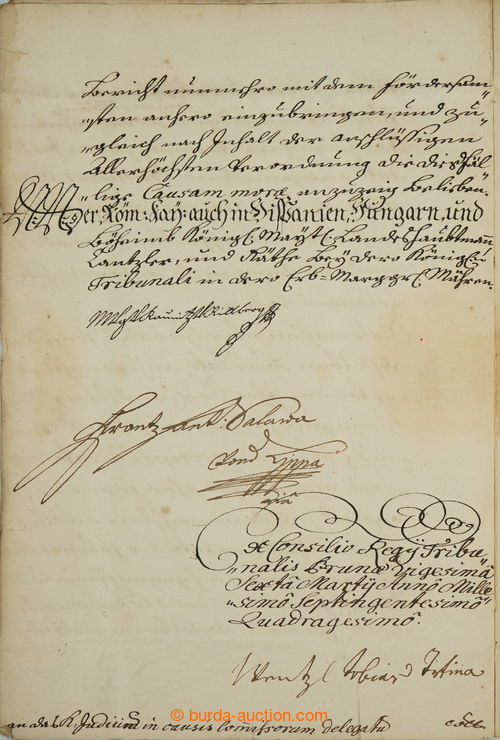 Bericht nunmehro mit dem fördersam-
-sten anhero einzubringen, und zu-
-gleich nach Inhalt der anschlüssigen
Allerhöchsten Verordnung die diesfäl-
-lige Causam moræ anzuzeig belieben.
Der Röm: Kay: auch in Hispanien, Hungarn, und
Böheimb Königl: Mayt: Landeshaubtmann
Cantzler, und Räthe bey dero Königl:
Tribunali in dero Erb-Marggr: Mähren.
Kaunitz Rittberg
Frantz Ant: Salawa
Lippa
Ex Consilio Regÿ Tribu-
-nalis Brunæ Vigesimâ
Sextâ Martÿ Annô Mille-
-simô Septingentesimô
Quadragesimô.
Wentzl Tobias
an das K: Judicium in causis Comissorum delegatu
© burda-auction.com